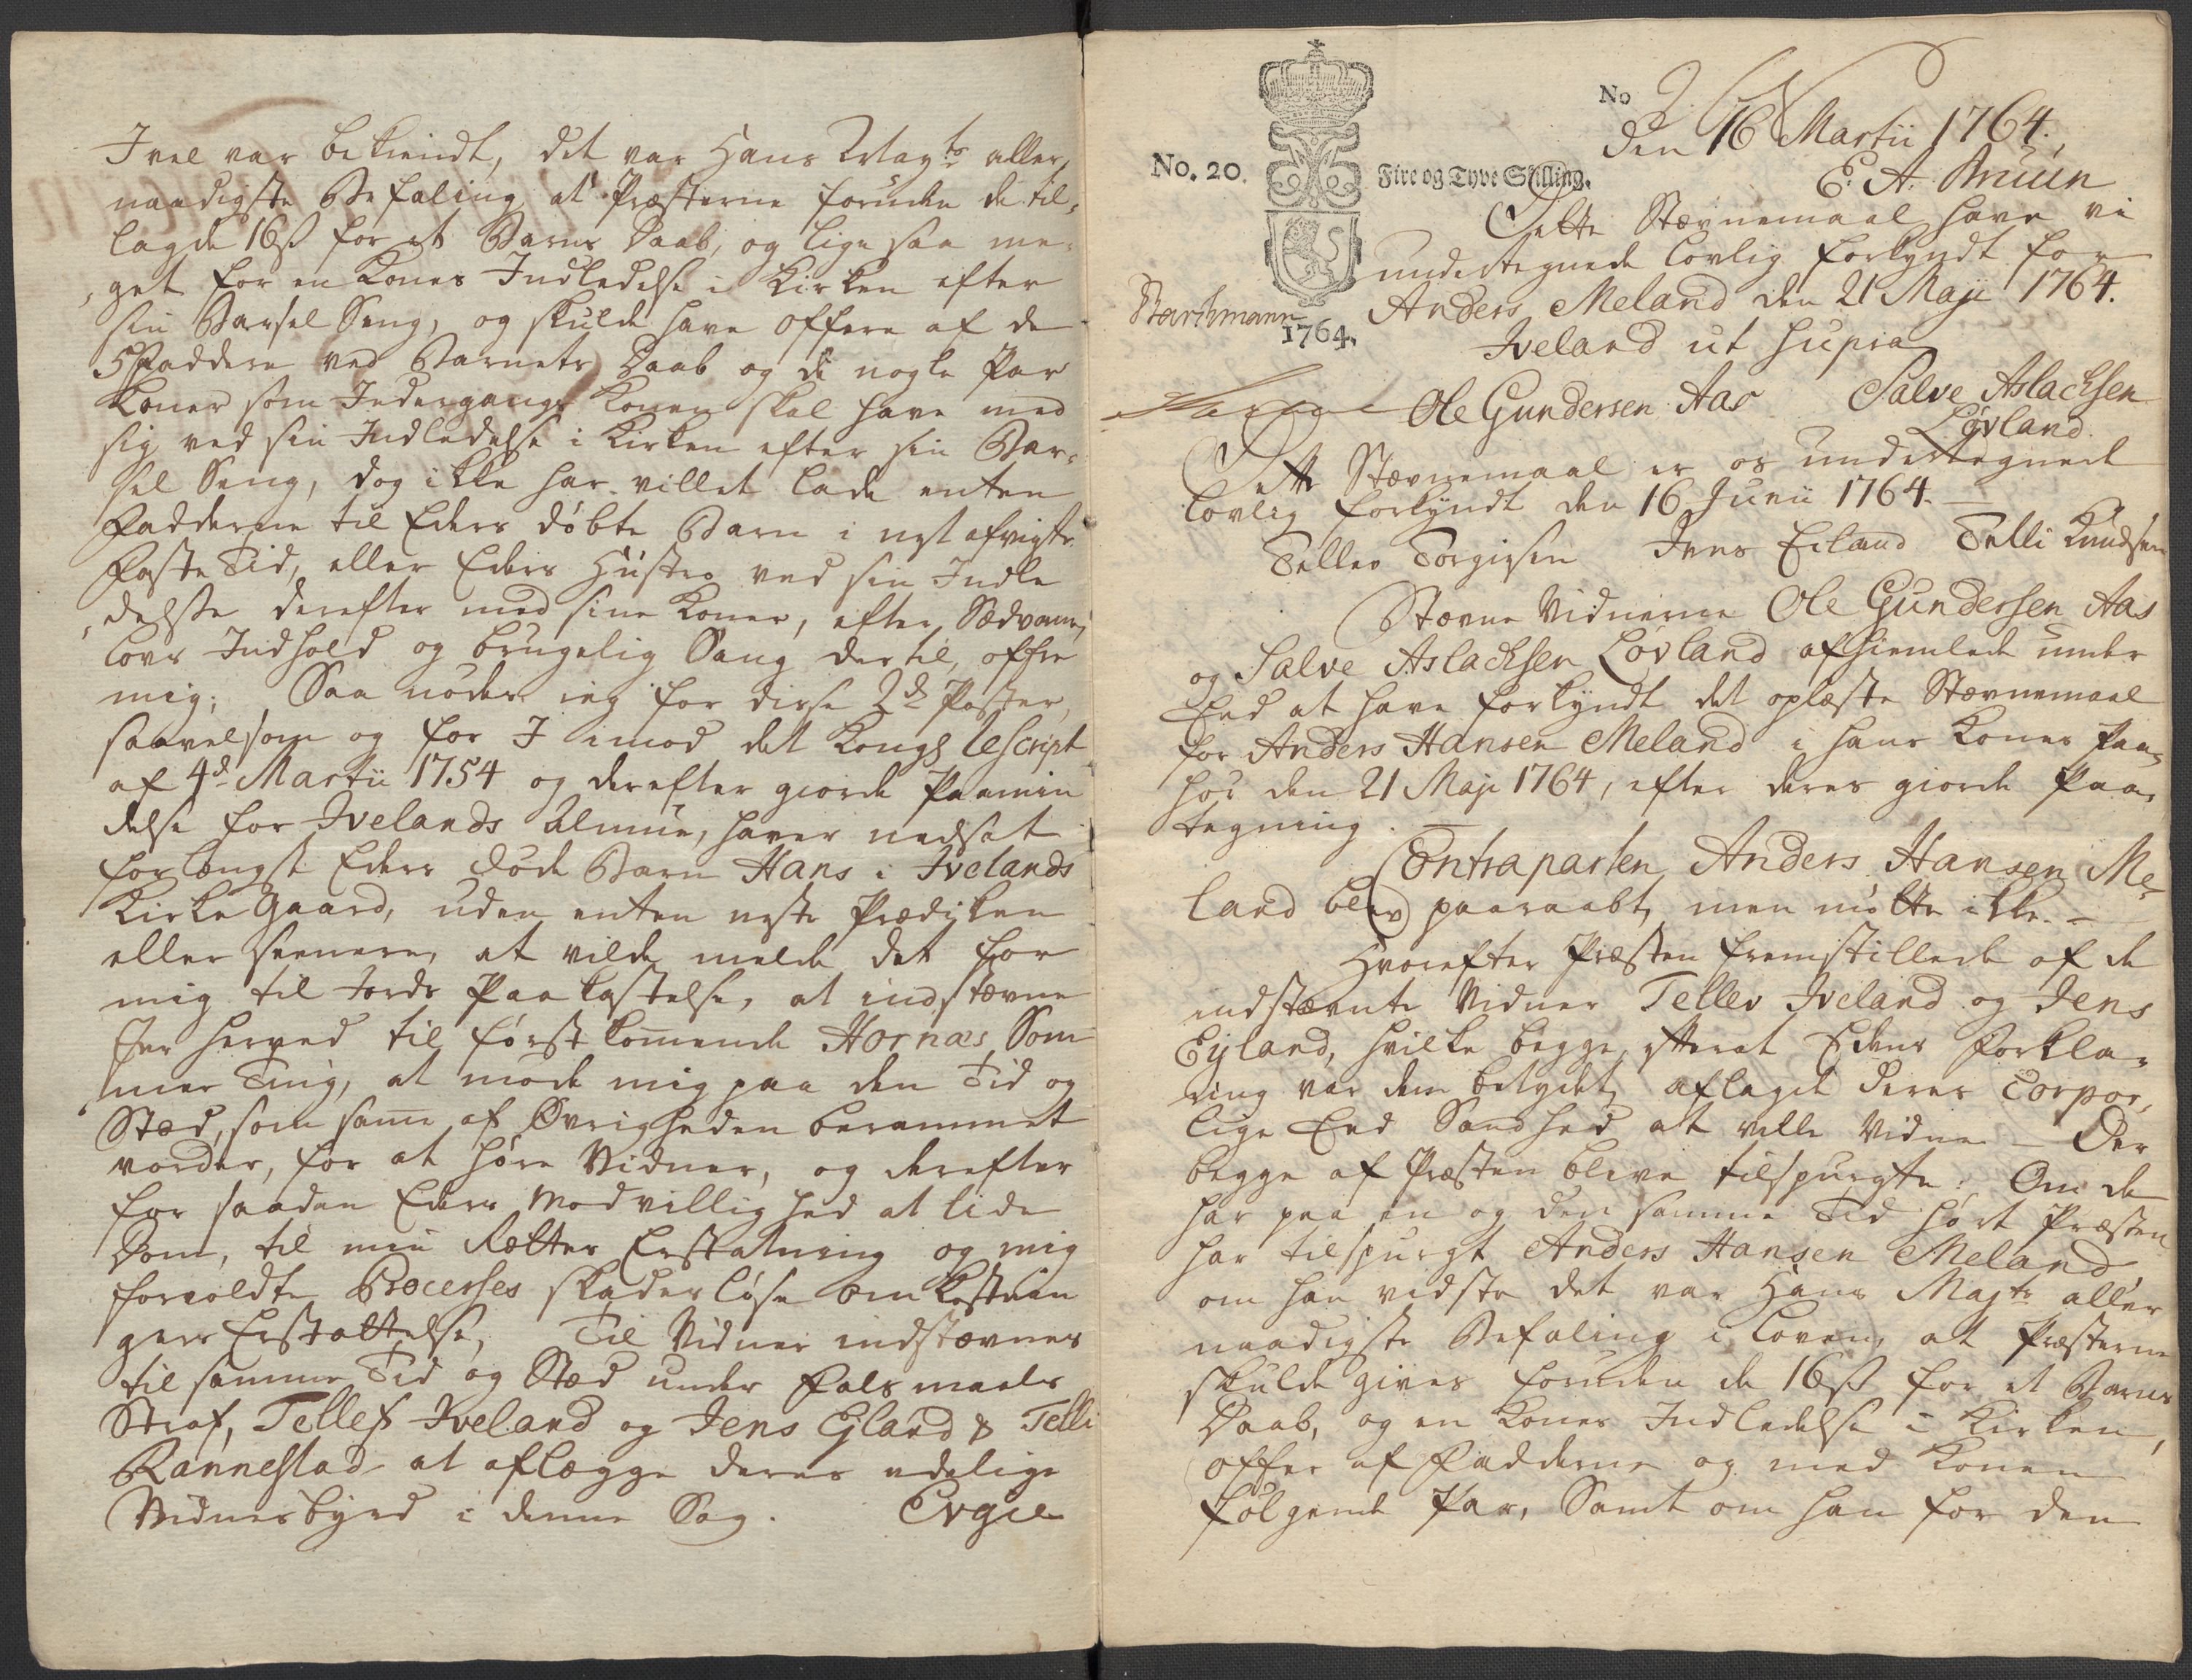 I vel var bekiendt, det var Hans Mayts aller,
naadigste Befaling at Præsterne foruden de til,
lagde 16ß for et Barns Daab, og lige saa me,
get for en Kones Indledelse i Kirken efter
sin Barsel Seng, og skulde have offere af de
5 Faddere ved Barnets Daab og de nogle Par
Koner som Indergangs Konen skal have med
sig ved sin Indledelse i Kirken efter sin Bar,
sel Seng, dog ikke har villet lade enten
Fadderne til Eders døbte Barn i nyst afvigte
Faste Tid, eller Eders Hustro ved sin Indle
delsse derefter med sine Koner, efter Sædvane,
lovs Indhold og brugelig Sang dertil, offre
mig; Saa nødes ieg for disse 2de Poster,
saavelsom og for I imod det Kongl Rescript
af 4d Martii 1754 og derefter giorde Paamin
delse for Ivelands Almue, haver nedsat
forlængst Eders døde Barn Hans i Ivelands
Kirke Gaard, uden enten neste Prædiken
eller seenere, at vilde melde det for
mig til Jords Paakastelse, at indstævne
Jer herved til først kommende Hornæs Som
mer Ting, at møde mig paa den Tid og
Stæd, som samme af Øvrigheden berammet
vorder, for at høre Vidner, og derefter
for saadan Eders Modvillighed at lide
Dom, til min Rættes Erstatning og mig
forvoldte Processes skadesløse Omkostnin
gers Erstattelse, Til Vidner indstævnes
til samme Tid og Stæd under Falsmaals
Straf, Tellef Iveland og Jens Ejland & Telli
Rannestad at aflægge deres edelige
Vidnesbyrd i denne Sag. Evgie
No 2
Den 16 Martii 1764.
No. 20. Fire og Tyve Skilling.
E. A. Bruun
Dette Stævnemaal have vi
undertegnede lovlig forkyndt for
Anders Meland den 21 Maji 1764.
Barthmann
1764.
Iveland ut supra
Ole Gundersen Aas Salve Aslachsen
Løvland.
Dette Stævnemaal er os undertegnede
lovlig forkyndt den 16 Junii 1764.
Tellev Torgiesen Jens Eiland Telli Knudsen
Stævne Vidnerne Ole Gundersen Aas
og Salve Aslachsen Løvland afhiemlede under
Eed at have forkyndt det oplæste Stævnemaal
for Anders Hansen Meland i hans Kones Paa,
hør den 21 Maji 1764, efter deres giorde Paa,
tegning.
Contraparten Anders Hansen Me,
land blev paaraabt, men mødte ikke. -
Hvorefter Præsten fremstillede af de
indstævnte Vidner Tellev Iveland og Jens
Eyland, hvilke begge, efterat Edens Forkla,
ring var dem betydet, aflagde deres Corpor,
lige Eed Sandhed at ville vidne - Der
begge af Præsten bleve tilspurgte: Om de
har paa en og den samme Tid hørt Præsten
har tilspurgt Anders Hansen Meland
om han vidste det var Hans Majts aller
naadigste Befaling i Loven, at Præsterne
skulde gives foruden de 16ß for et Barns
Daab, og en Kones Indledelse i Kirken,
offer af Fadderne og med Konen
følgende Par, Samt om han for den